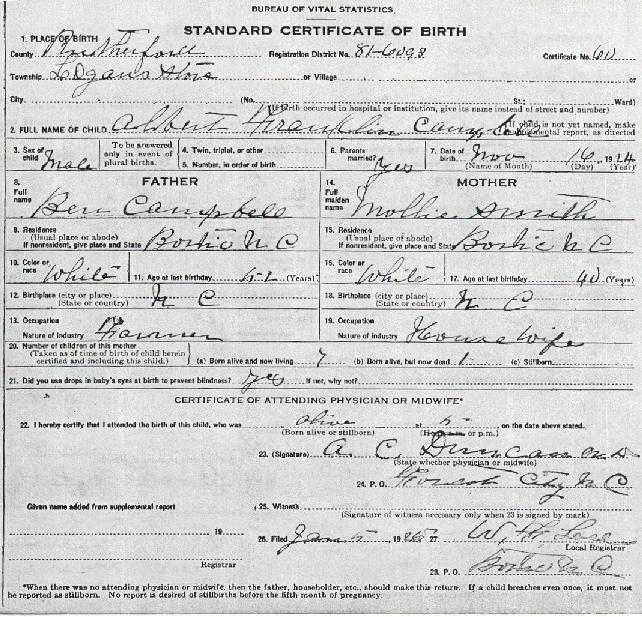 BUREAU OF VITAL STATISTICS,
STANDARD CERTIFICATE OF BIRTH
1. PLACE OF BIRTH
County Rutherford Registration District No. 81-6098 Certificate No. 60
Township Logans Store or Village or
City. (No. St.; Ward)
(If birth occurred in hospital or institution, give its name instead of street and number)
2. FULL NAME OF CHILD Albert Franklin Campbell If child is not yet named, make supplemental report, as directed
3. Sex of child Male To be answered only in event of plural births. 4. Twin, triplet, or other 5. Number, in order of birth 6. Parents married? Yes 7. Date of birth Nov 16, 1924
(Name of Month) (Day) (Year)
FATHER MOTHER
8. Full name Ben Campbell 14. Full maiden name Mollie Smith
9. Residence (Usual place or abode) If nonresident, give place and State Bostic N C 15. Residence (Usual place of abode) If nonresident, give place and State Bostic N C
10. Color or race White 11. Age at last birthday 52 (Years) 16. Color or race White 17. Age at last birthday 40 (Years)
12. Birthplace (city or place) (State or country) N C 18. Birthplace (city or place) (State or country) N C
13. Occupation Nature of Industry Farmer 19. Occupation Nature of Industry Housewife
20. Number of children of this mother (Taken as of time of birth of child herein certified and including this child.) (a) Born alive and now living 7 (b) Born alive, but now dead 1 (c) Stillborn
21. Did you use drops in baby's eyes at birth to prevent blindness? yes If not, why not?
CERTIFICATE OF ATTENDING PHYSICIAN OR MIDWIFE*
22. I hereby certify that I attended the birth of this child, who was alive at 5 on the date above stated.
(Born alive or stillborn) (Hour a.m. or p.m.)
23. (Signature) A. C. Duncan M D
(State whether physician or midwife)
24. P. O. Forest City N C
Given name added from supplemental report 25. Witness
(Signature of witness necessary only when 23 is signed by mark)
19 26. Filed Jan 5 19 27 W. H.
Registrar Local Registrar
28. P. O. Bostic N C
*When there was no attending physician or midwife, then the father, householder, etc., should make this return. If a child breathes even once, it must not
be reported as stillborn. No report is desired of stillbirths before the fifth month of pregnancy.